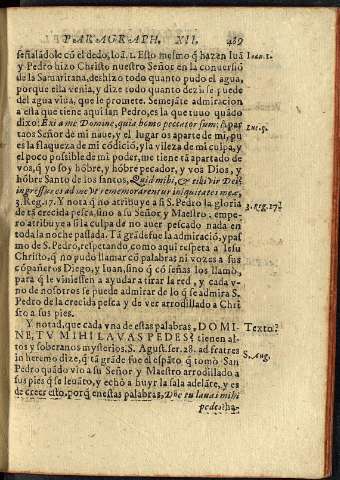 PARAGRAPH. XII. 489
señalãdole cũ el dedo, Ioã. 1. Esto mesmo q̃ hazen Iuã
y Pedro hizo Christo nuestro Señor en la conuersiõ
de la Samaritana, deshizo todo quanto pudo el agua,
porque ella venia, y dize todo quanto dezi se puede
del agua viua, que le promete. Semejãte admiracion
a esta que tiene aqui san Pedro, es la que tuuo quãdo
dixo: Exi a me Domine, quia homo peccator sum: apar
taos Señor de mi naue, y el lugar os aparte de mi, pu
es la flaqueza de mi cõdiciõ, y la vileza de mi culpa, y
el poco possible de mi poder, me tiene tã apartado de
vos, q̃ yo soy hõbre, y hõbre pecador, y vos Dios, y
hõbre Santo de los santos, Quid mihi, & tibi vir Dei?
ingressus es ad me vt rememorarentur iniquitates meæ,
3. Reg. 17. Y nota q̃ no atribuye a si S. Pedro la gloria
de tã crecida pesca, sino a su Señor y Maestro, empe-
ro atribuye a si la culpa de no auer pescado nada en
toda la noche passada. Tã grãde fue la admiraciõ, y pas
mo de S. Pedro, respetando como aqui respeta a Iesu
Christo, q̃ no pudo llamar cõ palabras ni vozes a sus
cõpañeros Diego, y Iuan, sino q̃ cõ señas los llamò,
para q̃ le viniessen a ayudar a tirar la red, y cada v-
no de nosotros le puede admirar de lo q̃ se admira S.
Pedro de la crecida pesca y de ver arrodillado a Chri
sto a sus pies.
Y notad, que cada vna de estas palabras, DOMI-
NE, TV MIHI LAVAS PEDES? tienen al-
tos y soberanos mysterios. S. Agust. ser. 28. ad fratres
in heremo dize, q̃ tã grãde fue el espãto q̃ tomò San
Pedro quãdo vio a su Señor y Maestro arrodillado a
sus pies q̃ se leuãtò, y echò a huyr la sala adelãte, y es
de creer esto, porq̃ en estas palabras, Dñe tu lauas mihi
pedes? ha-
Ioan. 1.
Luc. 5.
3. Reg. 17.
Texto.
S. Aug.